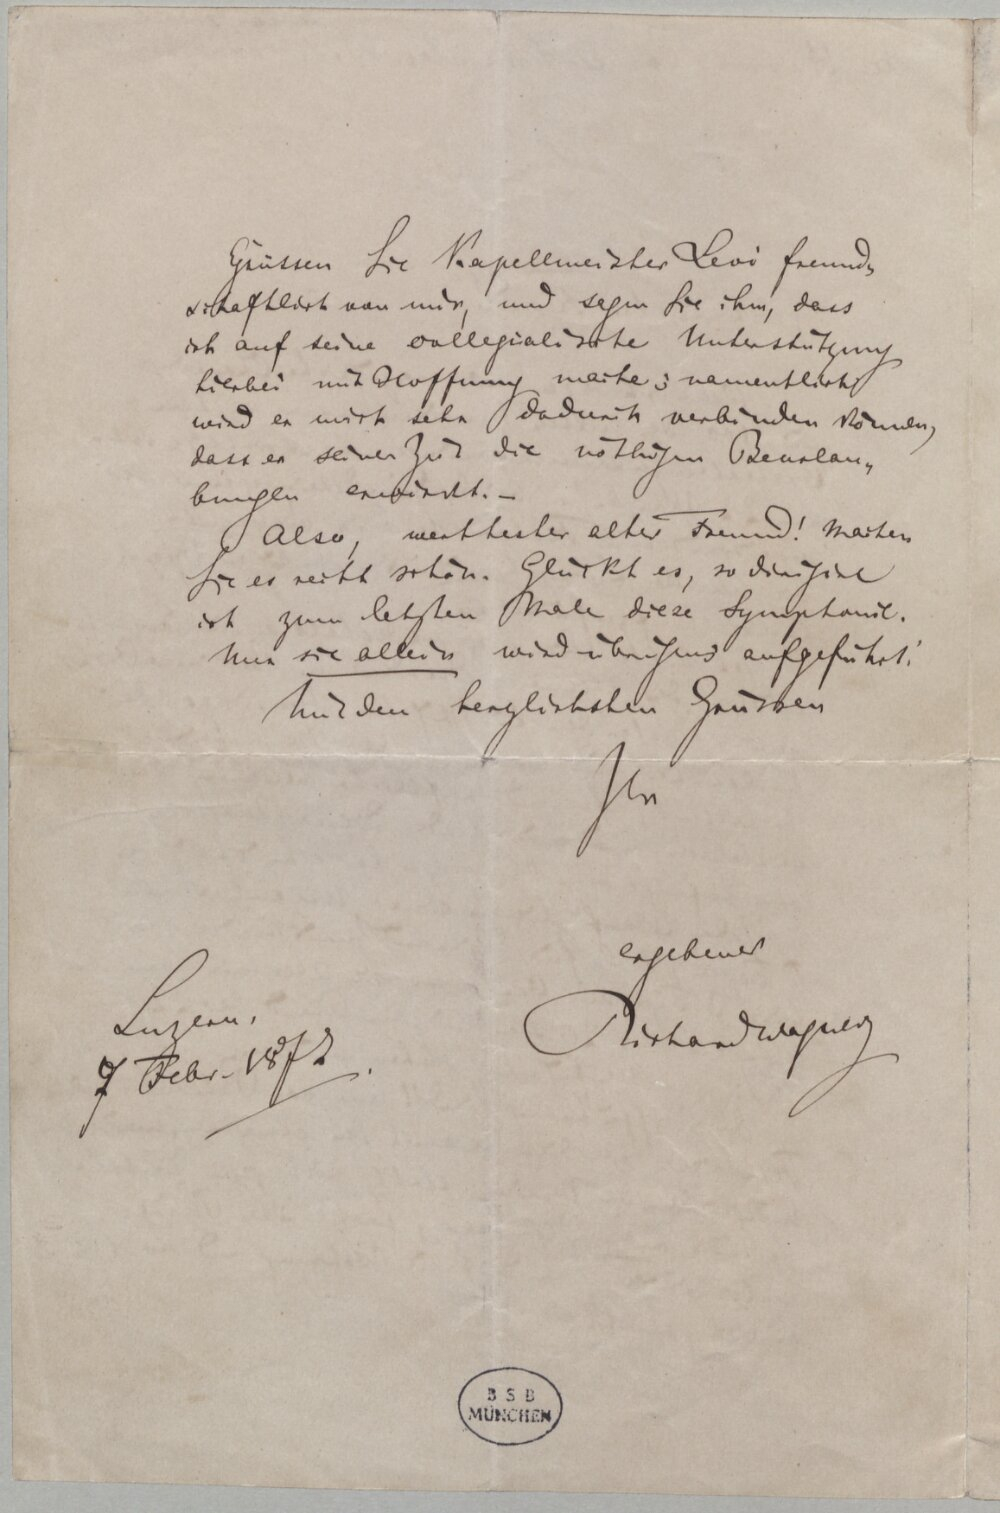 Grüssen Sie Kapellmeister Levi freund-
schaftlich von mir, und sagen Sie ihm, dass
ich auf seine collegialische Unterstützung
hierbei mit Hoffnung rechne; namentlich
wird er mich sehr dadurch verbinden können,
dass er seiner Zeit die nöthigen Beurlau-
bungen erwirkt. –
Also, werthester alter Freund! Machen
Sie es recht schön. Glückt es, so dirigire
ich zum letzten Male diese Symphonie.
Nur sie allein wird übrigens aufgeführt!
Mit den herzlichsten Grüssen
Ihr
ergebener
Richard Wagner
Luzern.
7 Febr. 1872.
BSB
MÜNCHEN